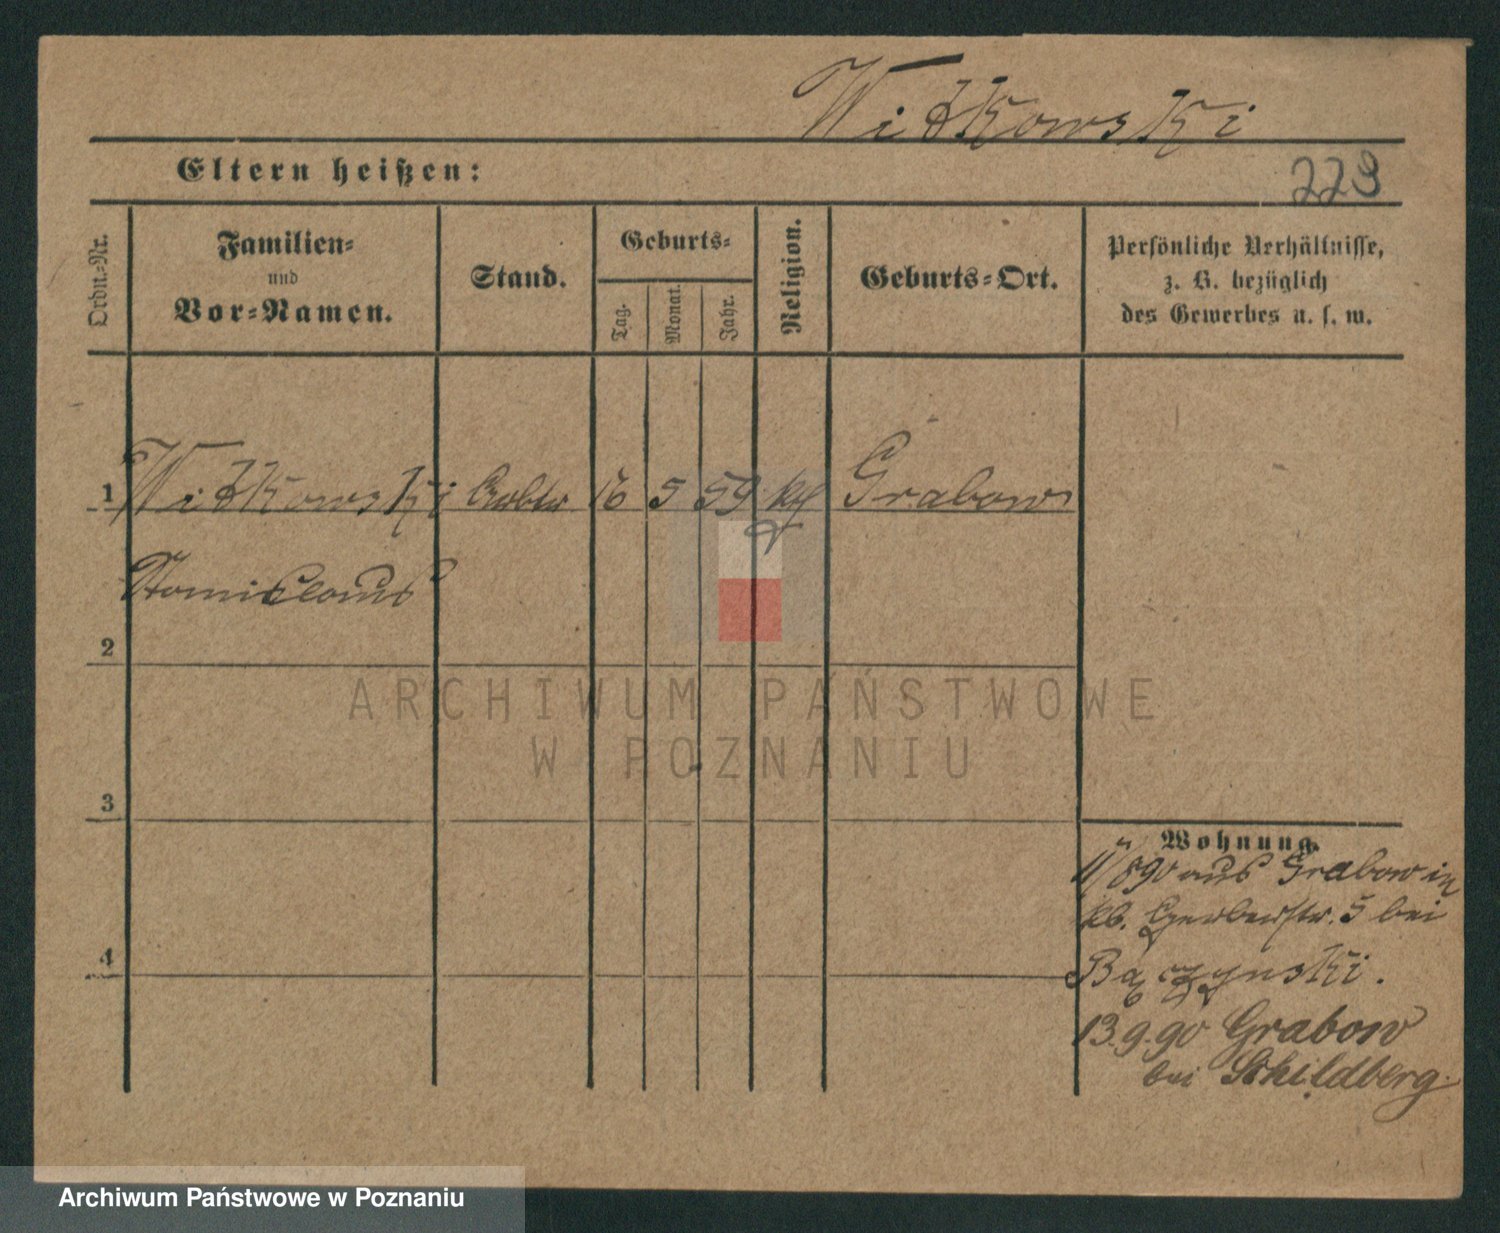 Witkowski
Eltern heißen:
223
Ordn.-Nr.
Familien-
und
Vor-Namen.
Stand.
Geburts-
Tag.
Monat.
Jahr.
Religion.
Geburts-Ort.
Persönliche Verhältnisse,
z. B. bezüglich
des Gewerbes u. s. w.
1 Witkowski 16 5 59 kth Grabow
Stanislaus
2
ARCHIWUM PAŃSTWOWE
W POZNANIU
3
4
Wohnung.
890 aus Grabow in
Gerberstr. 5 bei
Bączynski.
13.9.90 Grabow
bei Schildberg.
Archiwum Państwowe w Poznaniu